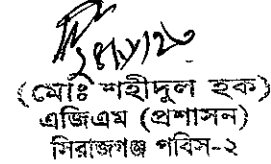 (মোঃ শহীদুল হক)
এজিএম (প্রশাসন)
সিরাজগঞ্জ পবিস-২